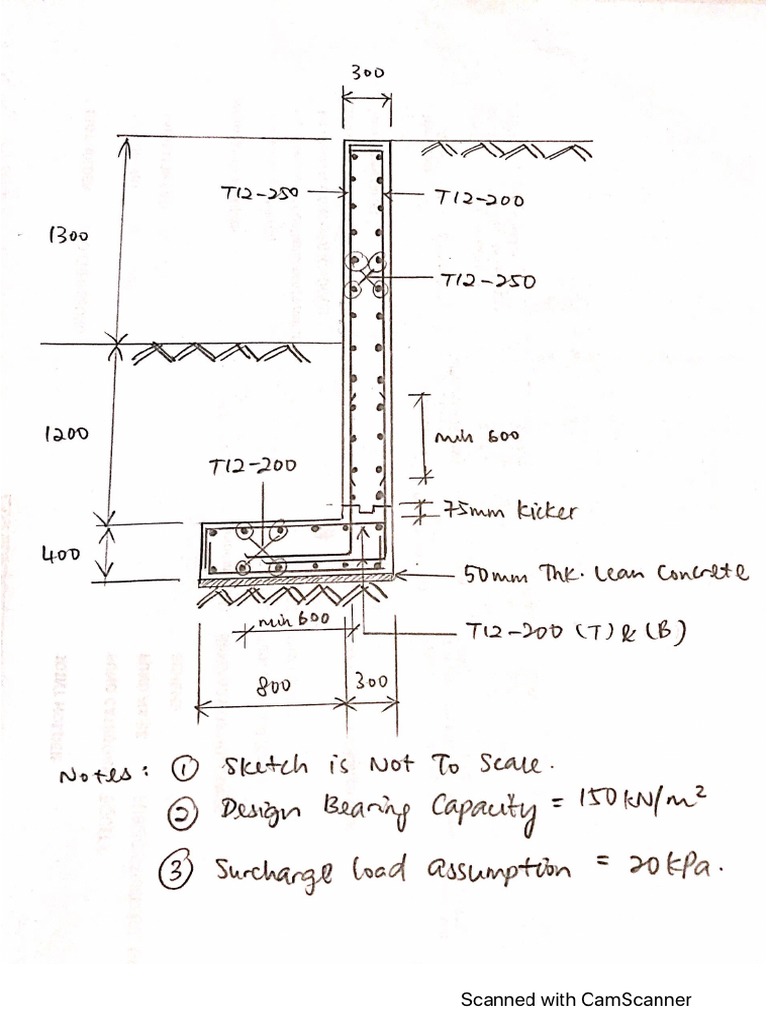 300
T12-250
T12-200
1300
T12-250
1200
min 600
T12-200
75mm kicker
400
50mm Thk. Lean Concrete
min 600
T12-200 (T) & (B)
800
300
Notes: ① Sketch is Not To Scale.
② Design Bearing Capacity = 150 kN/m²
③ Surcharge load assumption = 20 kPa.
Scanned with CamScanner